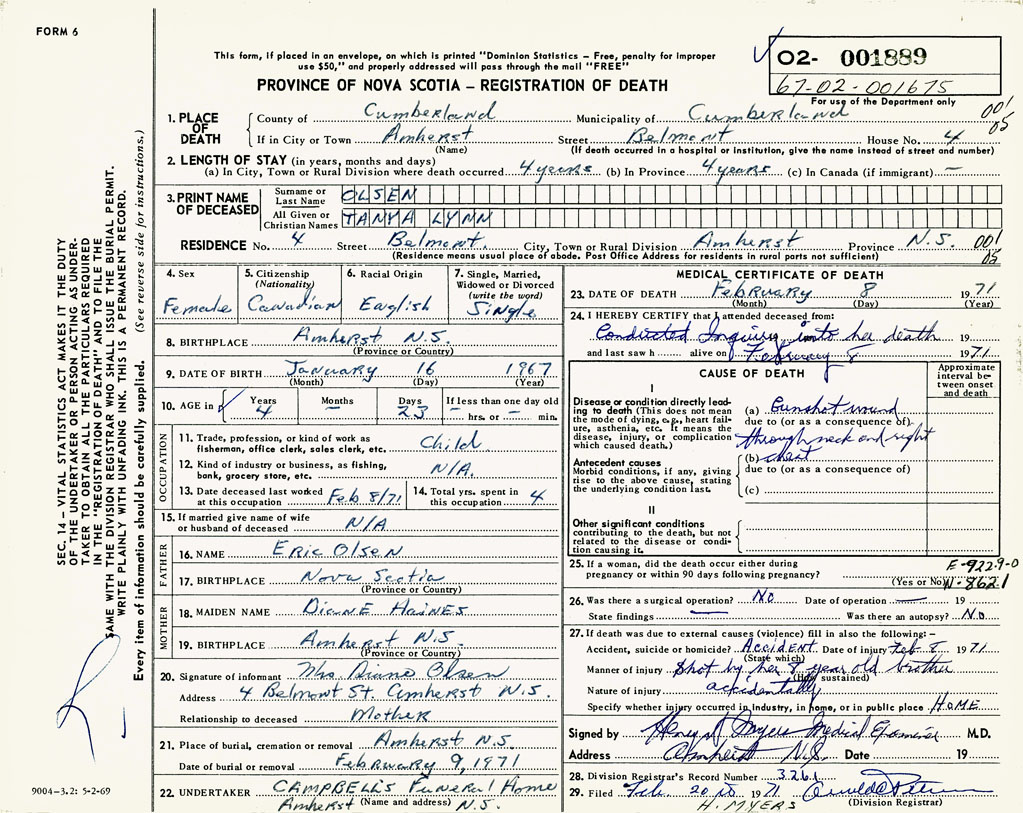 FORM 6
This form, if placed in an envelope, on which is printed "Dominion Statistics – Free, penalty for improper
use $50," and properly addressed will pass through the mail "FREE"
PROVINCE OF NOVA SCOTIA – REGISTRATION OF DEATH
02- 001889
67-02-001675
For use of the Department only
001
05
1. PLACE OF DEATH
County of Cumberland Municipality of Cumberland
If in City or Town Amherst Street Belmont House No. 4
(Name) (If death occurred in a hospital or institution, give the name instead of street and number)
2. LENGTH OF STAY (in years, months and days)
(a) In City, Town or Rural Division where death occurred 4 years (b) In Province 4 years (c) In Canada (if immigrant) —
3. PRINT NAME OF DECEASED
Surname or Last Name OLSEN
All Given or Christian Names TANYA LYNN
RESIDENCE No. 4 Street Belmont City, Town or Rural Division Amherst Province N.S. 001
(Residence means usual place of abode. Post Office Address for residents in rural parts not sufficient) 05
4. Sex
Female
5. Citizenship (Nationality)
Canadian
6. Racial Origin
English
7. Single, Married, Widowed or Divorced (write the word)
Single
8. BIRTHPLACE Amherst N.S.
(Province or Country)
9. DATE OF BIRTH January 16 1967
(Month) (Day) (Year)
10. AGE in Years 4 Months — Days 23 If less than one day old — hrs. or — min.
OCCUPATION
11. Trade, profession, or kind of work as fisherman, office clerk, sales clerk, etc. Child
12. Kind of industry or business, as fishing, bank, grocery store, etc. N/A.
13. Date deceased last worked at this occupation Feb 8/71
14. Total yrs. spent in this occupation 4
15. If married give name of wife or husband of deceased N/A
FATHER
16. NAME Eric Olsen
17. BIRTHPLACE Nova Scotia
(Province or Country)
MOTHER
18. MAIDEN NAME Diane Haines
19. BIRTHPLACE Amherst N.S.
(Province or Country)
20. Signature of informant Mrs Diane Olsen
Address 4 Belmont St. Amherst N.S.
Relationship to deceased Mother
21. Place of burial, cremation or removal Amherst N.S.
Date of burial or removal February 9, 1971
22. UNDERTAKER CAMPBELL'S Funeral Home
Amherst (Name and address) N.S.
MEDICAL CERTIFICATE OF DEATH
23. DATE OF DEATH February 8 1971
(Month) (Day) (Year)
24. I HEREBY CERTIFY that I attended deceased from:
Conducted Inquiry into her death 19
and last saw h alive on February 8 1971
CAUSE OF DEATH
Approximate interval between onset and death
I
Disease or condition directly leading to death (This does not mean the mode of dying, e.g., heart failure, asthenia, etc. It means the disease, injury, or complication which caused death.)
(a) Gunshot wound
due to (or as a consequence of)
through neck and right
(b) chest
due to (or as a consequence of)
(c)
Antecedent causes
Morbid conditions, if any, giving rise to the above cause, stating the underlying condition last.
II
Other significant conditions
contributing to the death, but not related to the disease or condition causing it.
25. If a woman, did the death occur either during E-922.9-0
pregnancy or within 90 days following pregnancy? (Yes or No) N-862.1
26. Was there a surgical operation? No Date of operation — 19
State findings — Was there an autopsy? No
27. If death was due to external causes (violence) fill in also the following: –
Accident, suicide or homicide? Accident Date of injury Feb 8 1971
(State which)
Manner of injury Shot by her 8 year old brother
(How sustained)
Nature of injury accidentally
Specify whether injury occurred in industry, in home, or in public place HOME
Signed by Henry Myers Medical Examiner M.D.
Address Amherst N.S. Date 19
28. Division Registrar's Record Number 3261
29. Filed Feb. 20 1971
(Division Registrar)
H. MYERS
SEC. 14 – VITAL STATISTICS ACT MAKES IT THE DUTY
OF THE UNDERTAKER OR PERSON ACTING AS UNDER-
TAKER TO OBTAIN ALL THE PARTICULARS REQUIRED
IN THE "REGISTRATION OF DEATH" AND TO FILE THE
SAME WITH THE DIVISION REGISTRAR WHO SHALL ISSUE THE BURIAL PERMIT.
WRITE PLAINLY WITH UNFADING INK. THIS IS A PERMANENT RECORD.
Every item of information should be carefully supplied. (See reverse side for instructions.)
9004-3.2: 5-2-69